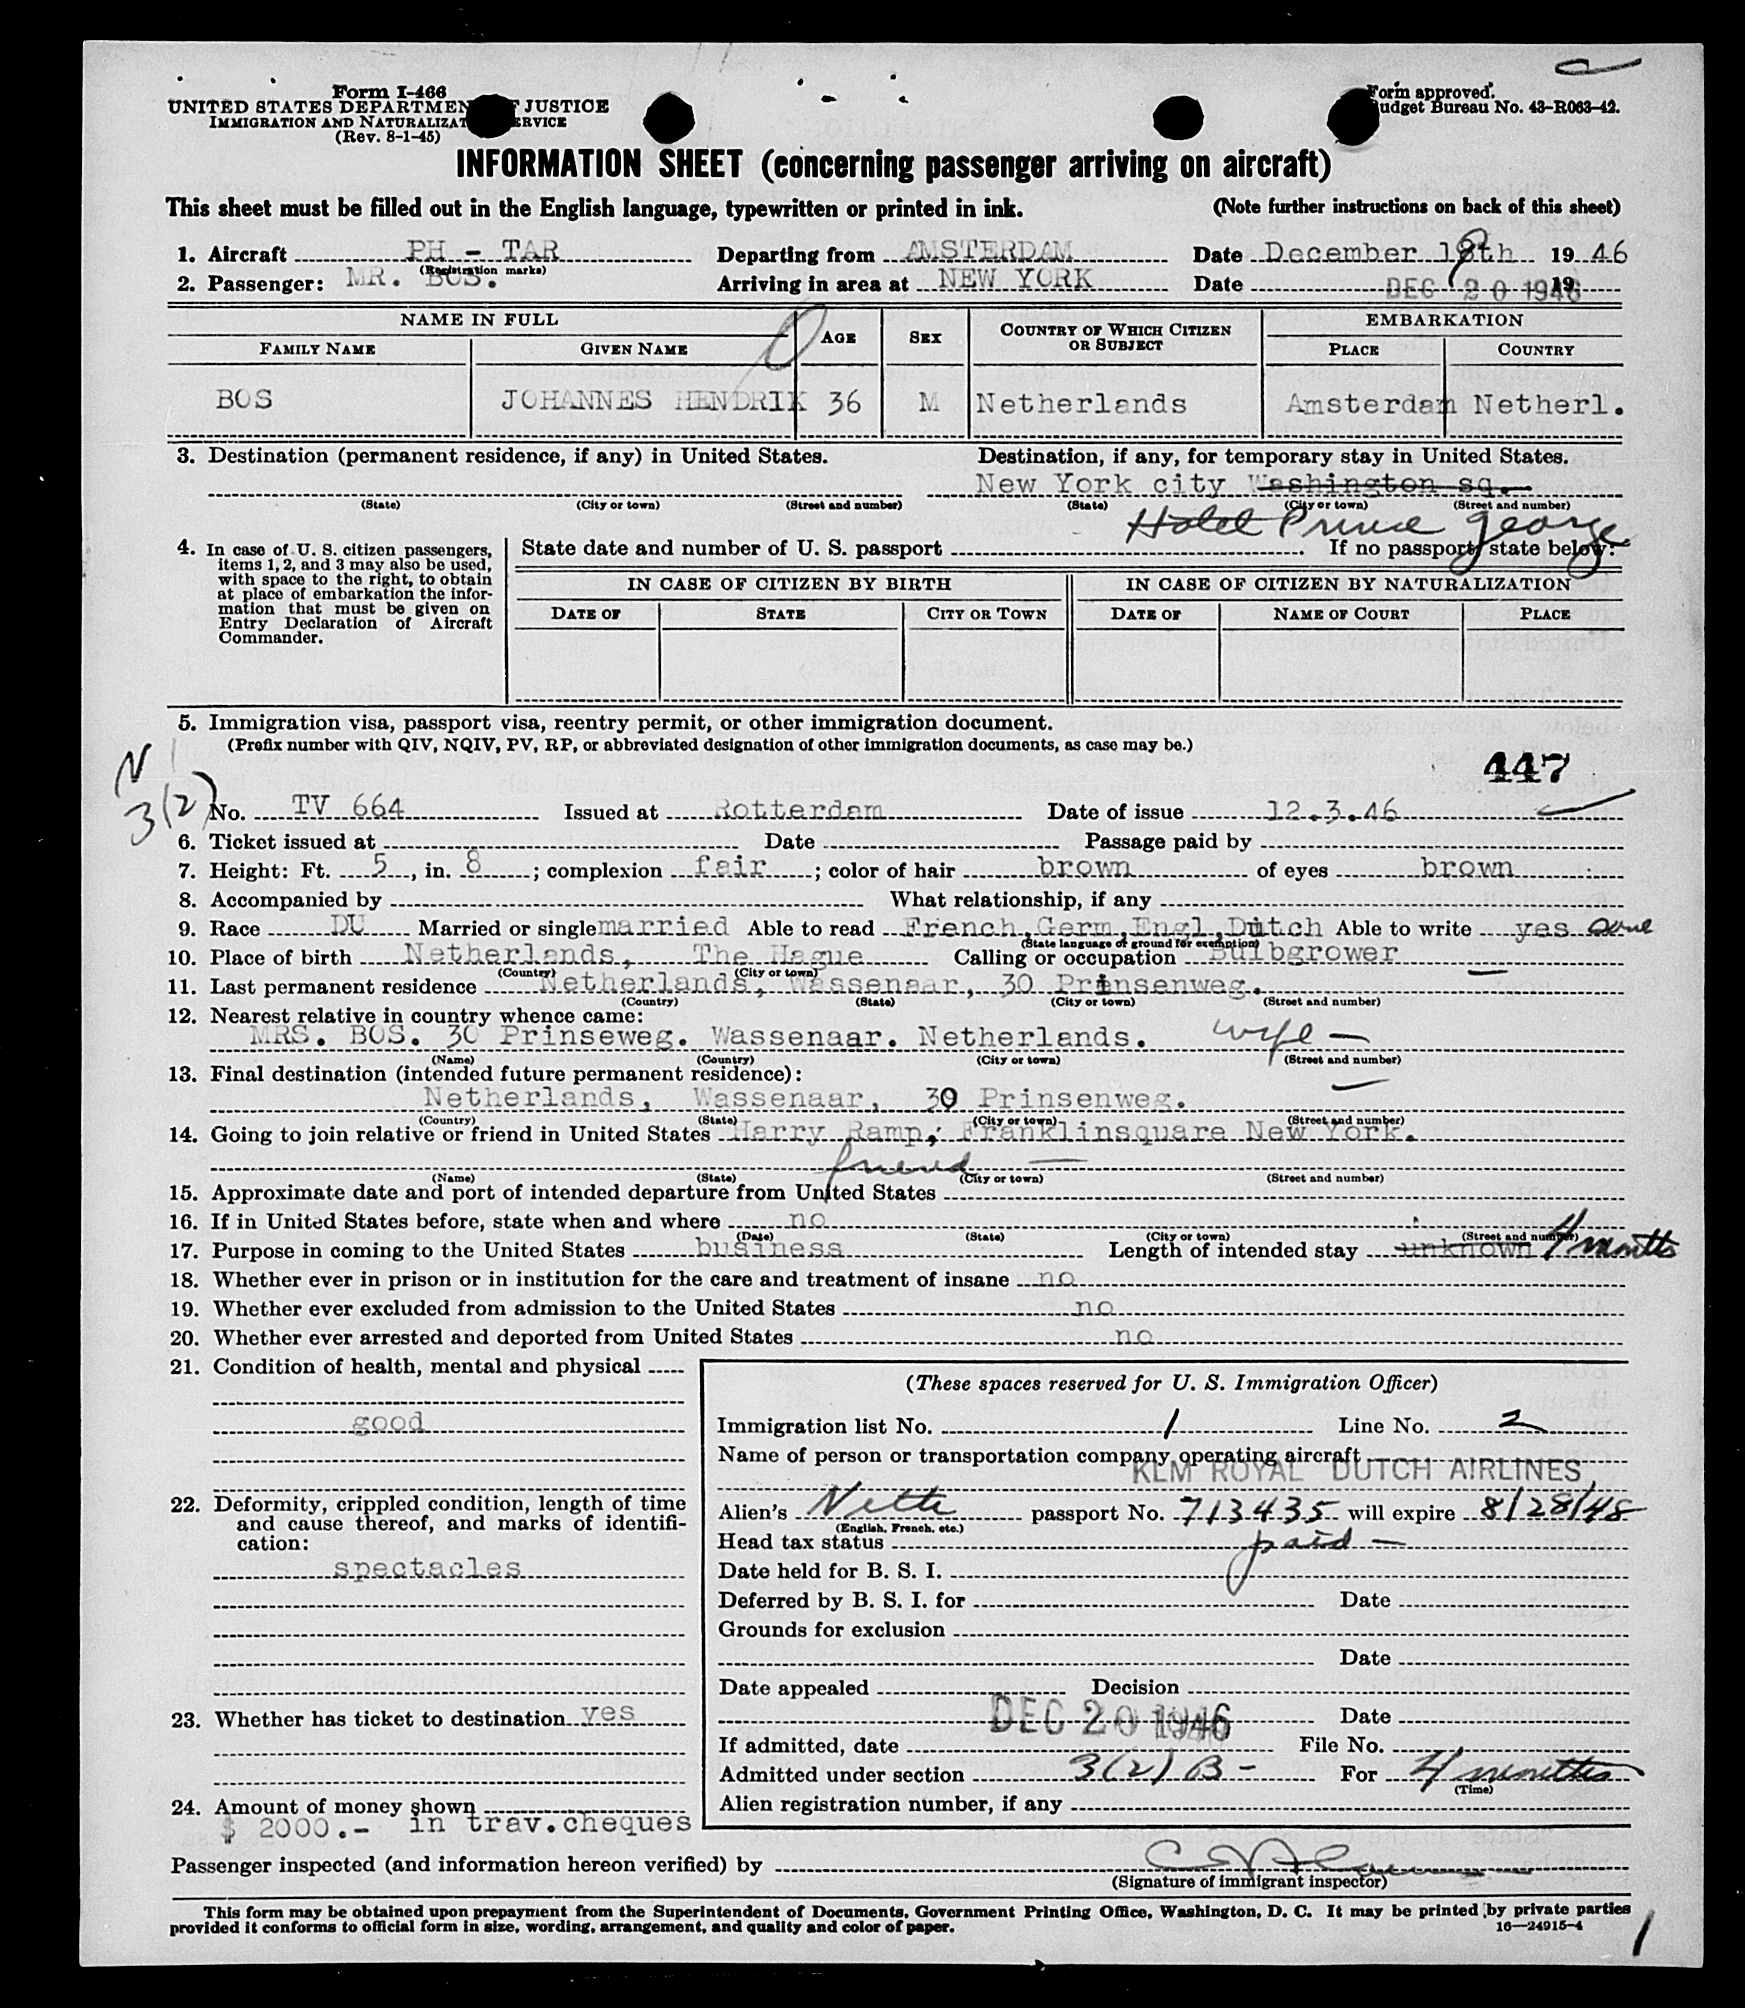 Form I-466
UNITED STATES DEPARTMENT OF JUSTICE
IMMIGRATION AND NATURALIZATION SERVICE
(Rev. 8-1-45)
Form approved.
Budget Bureau No. 43-R063-42.
INFORMATION SHEET (concerning passenger arriving on aircraft)
This sheet must be filled out in the English language, typewritten or printed in ink. (Note further instructions on back of this sheet)
1. Aircraft PH - TAR Departing from AMSTERDAM Date December 18th 19 46
(Registration marks)
2. Passenger: MR. BOS. Arriving in area at NEW YORK Date DEC 20 1946 19
NAME IN FULL AGE SEX COUNTRY OF WHICH CITIZEN OR SUBJECT EMBARKATION
FAMILY NAME GIVEN NAME PLACE COUNTRY
BOS JOHANNES HENDRIK 36 M Netherlands Amsterdam Netherl.
3. Destination (permanent residence, if any) in United States. Destination, if any, for temporary stay in United States.
New York city Washington sq.
(State) (City or town) (Street and number) (State) (City or town) (Street and number)
Hotel Prince george
4. In case of U. S. citizen passengers, items 1, 2, and 3 may also be used, with space to the right, to obtain at place of embarkation the information that must be given on Entry Declaration of Aircraft Commander.
State date and number of U. S. passport . If no passport, state below:
IN CASE OF CITIZEN BY BIRTH IN CASE OF CITIZEN BY NATURALIZATION
DATE OF STATE CITY OR TOWN DATE OF NAME OF COURT PLACE
5. Immigration visa, passport visa, reentry permit, or other immigration document.
(Prefix number with QIV, NQIV, PV, RP, or abbreviated designation of other immigration documents, as case may be.)
447
N
3(2)
No. TV 664 Issued at Rotterdam Date of issue 12.3.46
6. Ticket issued at Date Passage paid by
7. Height: Ft. 5, in. 8; complexion fair; color of hair brown of eyes brown
8. Accompanied by What relationship, if any
9. Race DU Married or single married Able to read French,Germ,Engl,Dutch Able to write yes same
(State language or ground for exemption)
10. Place of birth Netherlands, The Hague Calling or occupation Bulbgrower
(Country) (City or town)
11. Last permanent residence Netherlands, Wassenaar, 30 Prinsenweg.
(Country) (State) (City or town) (Street and number)
12. Nearest relative in country whence came:
MRS. BOS. 30 Prinseweg. Wassenaar. Netherlands. wife -
(Name) (Country) (City or town) (Street and number)
13. Final destination (intended future permanent residence):
Netherlands, Wassenaar, 30 Prinsenweg.
(Country) (State) (City or town) (Street and number)
14. Going to join relative or friend in United States Harry Ramp, Franklinsquare New York.
friend -
(Name) (State) (City or town) (Street and number)
15. Approximate date and port of intended departure from United States
16. If in United States before, state when and where no
(Date) (State) (City or town) (Street and number)
17. Purpose in coming to the United States business Length of intended stay unknown 4 months
18. Whether ever in prison or in institution for the care and treatment of insane no
19. Whether ever excluded from admission to the United States no
20. Whether ever arrested and deported from United States no
21. Condition of health, mental and physical
good
22. Deformity, crippled condition, length of time and cause thereof, and marks of identification:
spectacles
23. Whether has ticket to destination yes
24. Amount of money shown
$ 2000.- in trav.cheques
(These spaces reserved for U. S. Immigration Officer)
Immigration list No. 1 Line No. 2
Name of person or transportation company operating aircraft
KLM ROYAL DUTCH AIRLINES,
Alien's Neth passport No. 713435 will expire 8/28/48
(English, French, etc.)
Head tax status paid -
Date held for B. S. I.
Deferred by B. S. I. for Date
Grounds for exclusion
Date
Date appealed Decision
DEC 20 1946 Date
If admitted, date File No.
Admitted under section 3(2) B - For 4 months
(Time)
Alien registration number, if any
Passenger inspected (and information hereon verified) by
(Signature of immigrant inspector)
This form may be obtained upon prepayment from the Superintendent of Documents, Government Printing Office, Washington, D. C. It may be printed by private parties
provided it conforms to official form in size, wording, arrangement, and quality and color of paper. 16—24915-4
1